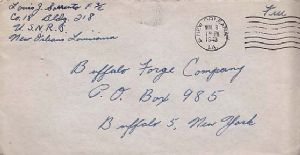 Louis J. Sorrento F 2/c
Co. 18 Bldg. 218
U.S.N.R.B.
New Orleans Louisiana
NEW ORLEANS
LA.
Free
Buffalo Forge Company
P.O. Box 985
Buffalo 5, New York